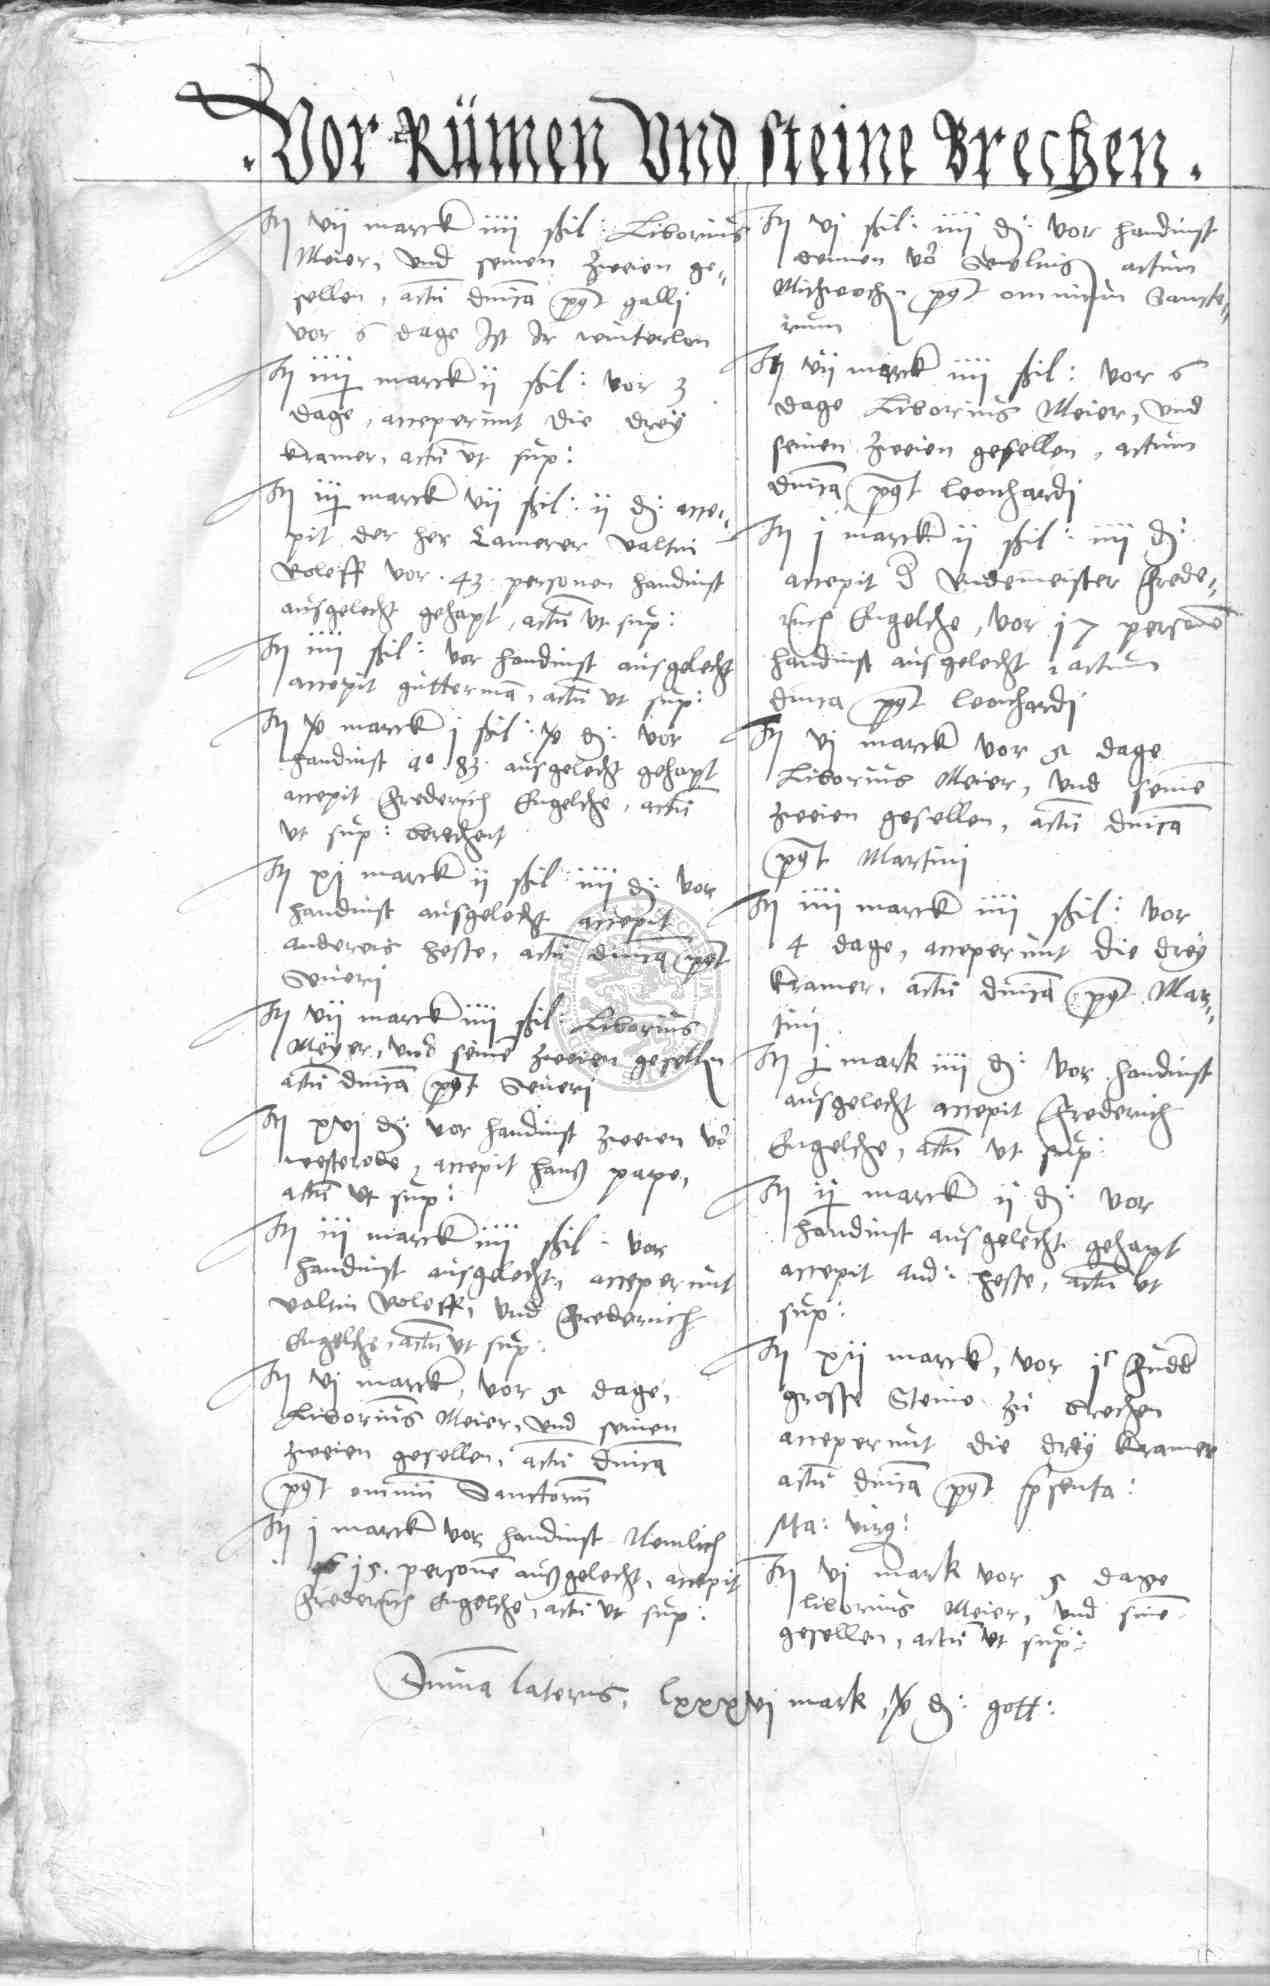 Vor Rümen Und steine Brechen.
It vii marck iiii ßil: Liborius
Meier, und seinen zweien ge-
sellen, actu dnica post galli
vor 6 dage ist ir winterlon
It iiii marck ii ßil: vor 3
dage, acceperunt die drey
kramer, actu ut sup:
It iii marck vii ßil: ii d: acce-
pit der her Camerer valtin
Roleff vor 43 personen handinst
ausgelecht gehapt, actu ut sup:
It iiii ßil: vor handinst ausgelecht
accepit gutterma, actu ut sup:
It marck i ßil: d: vor
handinst ausgelecht gehapt
accepit Frederich Engelche, actu
ut sup: berechent
It xi marck ii ßil iiii d: vor
handinst ausgelecht accepit
andereis hesse, actu dnica post
Severi
It vii marck iiii ßil: Liborius
Meyer, und seine zweien gesellen
actu dnica post Severi
It xvi d: vor handinst zweien vo
westerode, accepit hans pape,
actu ut sup:
It iii marck iiii ßil: vor
handinst ausgelecht, acceperunt
valtin Roleff, und Frederich
Engelche, actu ut sup:
It vi marck, vor 5 dage,
Liborius Meier, und seinen
zweien gesellen, actu dnica
post omniu Sanctoru
It i marck vor handinst Nemlich
15. personen ausgelecht, accepit
Frederich Engelche, actu ut sup:
It vi ßil: iiii d: vor handinst
vo actum
Mitzwoch post omnium Sancto-
rum
It vii marck iiii ßil: vor 6
dage Liborius Meier, und
seinen zweien gesellen, actum
dnica post leonhardi
It i marck ii ßil: iiii d:
accepit d Frede-
rich Engelche, vor 17 persone
handinst ausgelecht, actum
dnica post leonhardi
It vi marck vor 5 dage
Liborius Meier, und seine
zweien gesellen, actu dnica
post Martini
It iiii marck iiii ßil: vor
4 dage, acceperunt die drey
kramer, actu dnica post Mar-
tini
It mark iiii d: vor handinst
ausgelecht accepit Frederich
Engelche, actu ut sup:
It ii marck ii d: vor
handinst ausgelecht gehapt
accepit and: hesse, actu ut
sup:
It xii marck, vor
grosse Steine zu brechen
acceperunt die drey kramer
actu dnica post psenta:
Ma: virg:
It vi mark vor 5 dage
liborius Meier, und sine
gesellen, actu ut sup:
Suma lateris, lxxxvi mark, d: gott: